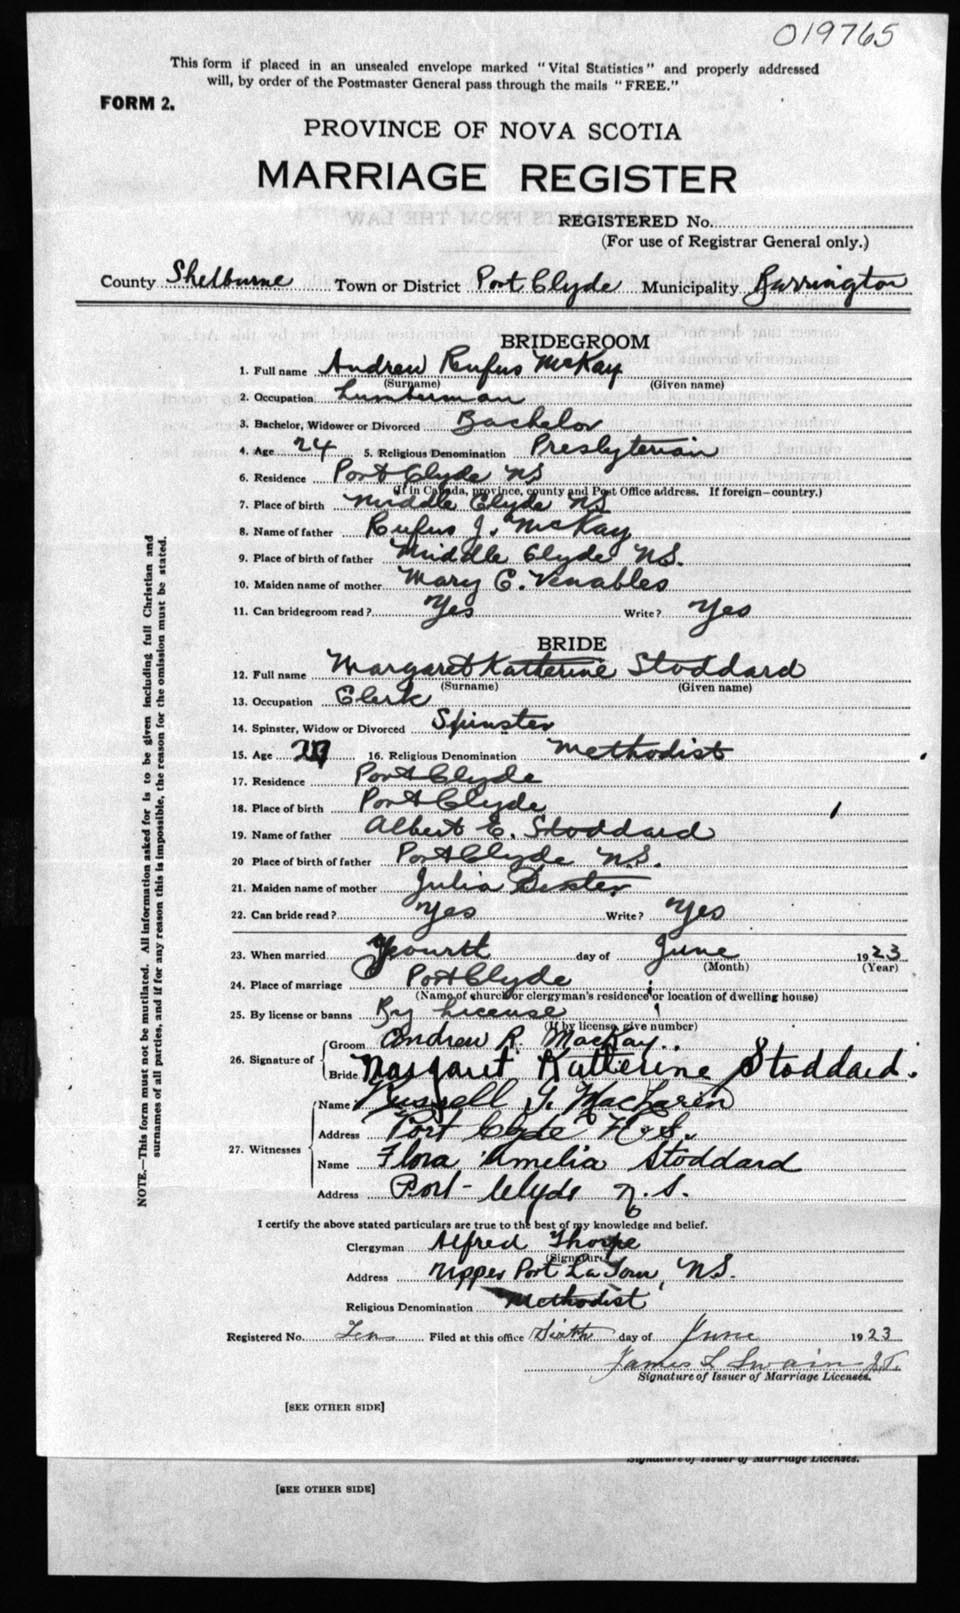 019765
This form if placed in an unsealed envelope marked "Vital Statistics" and properly addressed
will, by order of the Postmaster General pass through the mails "FREE."
FORM 2.
PROVINCE OF NOVA SCOTIA
MARRIAGE REGISTER
REGISTERED No.
(For use of Registrar General only.)
County Shelburne Town or District Port Clyde Municipality Barrington
BRIDEGROOM
1. Full name Andrew Rufus McKay
(Surname) (Given name)
2. Occupation Lumberman
3. Bachelor, Widower or Divorced Bachelor
4. Age 24 5. Religious Denomination Presbyterian
6. Residence Port Clyde NS
(If in Canada, province, county and Post Office address. If foreign—country.)
7. Place of birth Middle Clyde NS
8. Name of father Rufus J. McKay
9. Place of birth of father Middle Clyde NS.
10. Maiden name of mother Mary C. Venables
11. Can bridegroom read? Yes Write? Yes
BRIDE
12. Full name Margaret Katterine Stoddard
(Surname) (Given name)
13. Occupation Clerk
14. Spinster, Widow or Divorced Spinster
15. Age 16. Religious Denomination Methodist
17. Residence Port Clyde
18. Place of birth Port Clyde
19. Name of father Albert E. Stoddard
20 Place of birth of father Port Clyde N.S.
21. Maiden name of mother Julia Dexter
22. Can bride read? Yes Write? Yes
23. When married Fourth day of June 1923
(Month) (Year)
24. Place of marriage Port Clyde
(Name of church or clergyman's residence or location of dwelling house)
25. By license or banns By License
(If by license, give number)
26. Signature of Groom Andrew R. MacKay.
Bride Margaret Katterine Stoddard.
27. Witnesses
Name Russell MacLaren
Address Port Clyde N.S.
Name Flora Amelia Stoddard
Address Port-Clyde N.S.
I certify the above stated particulars are true to the best of my knowledge and belief.
Clergyman Alfred Thorpe
(Signature)
Address Upper Port La Tour, NS.
Religious Denomination Methodist
Registered No. Ten Filed at this office Sixth day of June 1923
James L Swain
Signature of Issuer of Marriage Licenses.
[SEE OTHER SIDE]
Signature of Issuer of Marriage Licenses.
[SEE OTHER SIDE]
NOTE.—This form must not be mutilated. All information asked for is to be given including full Christian and
surnames of all parties, and if for any reason this is impossible, the reason for the omission must be stated.